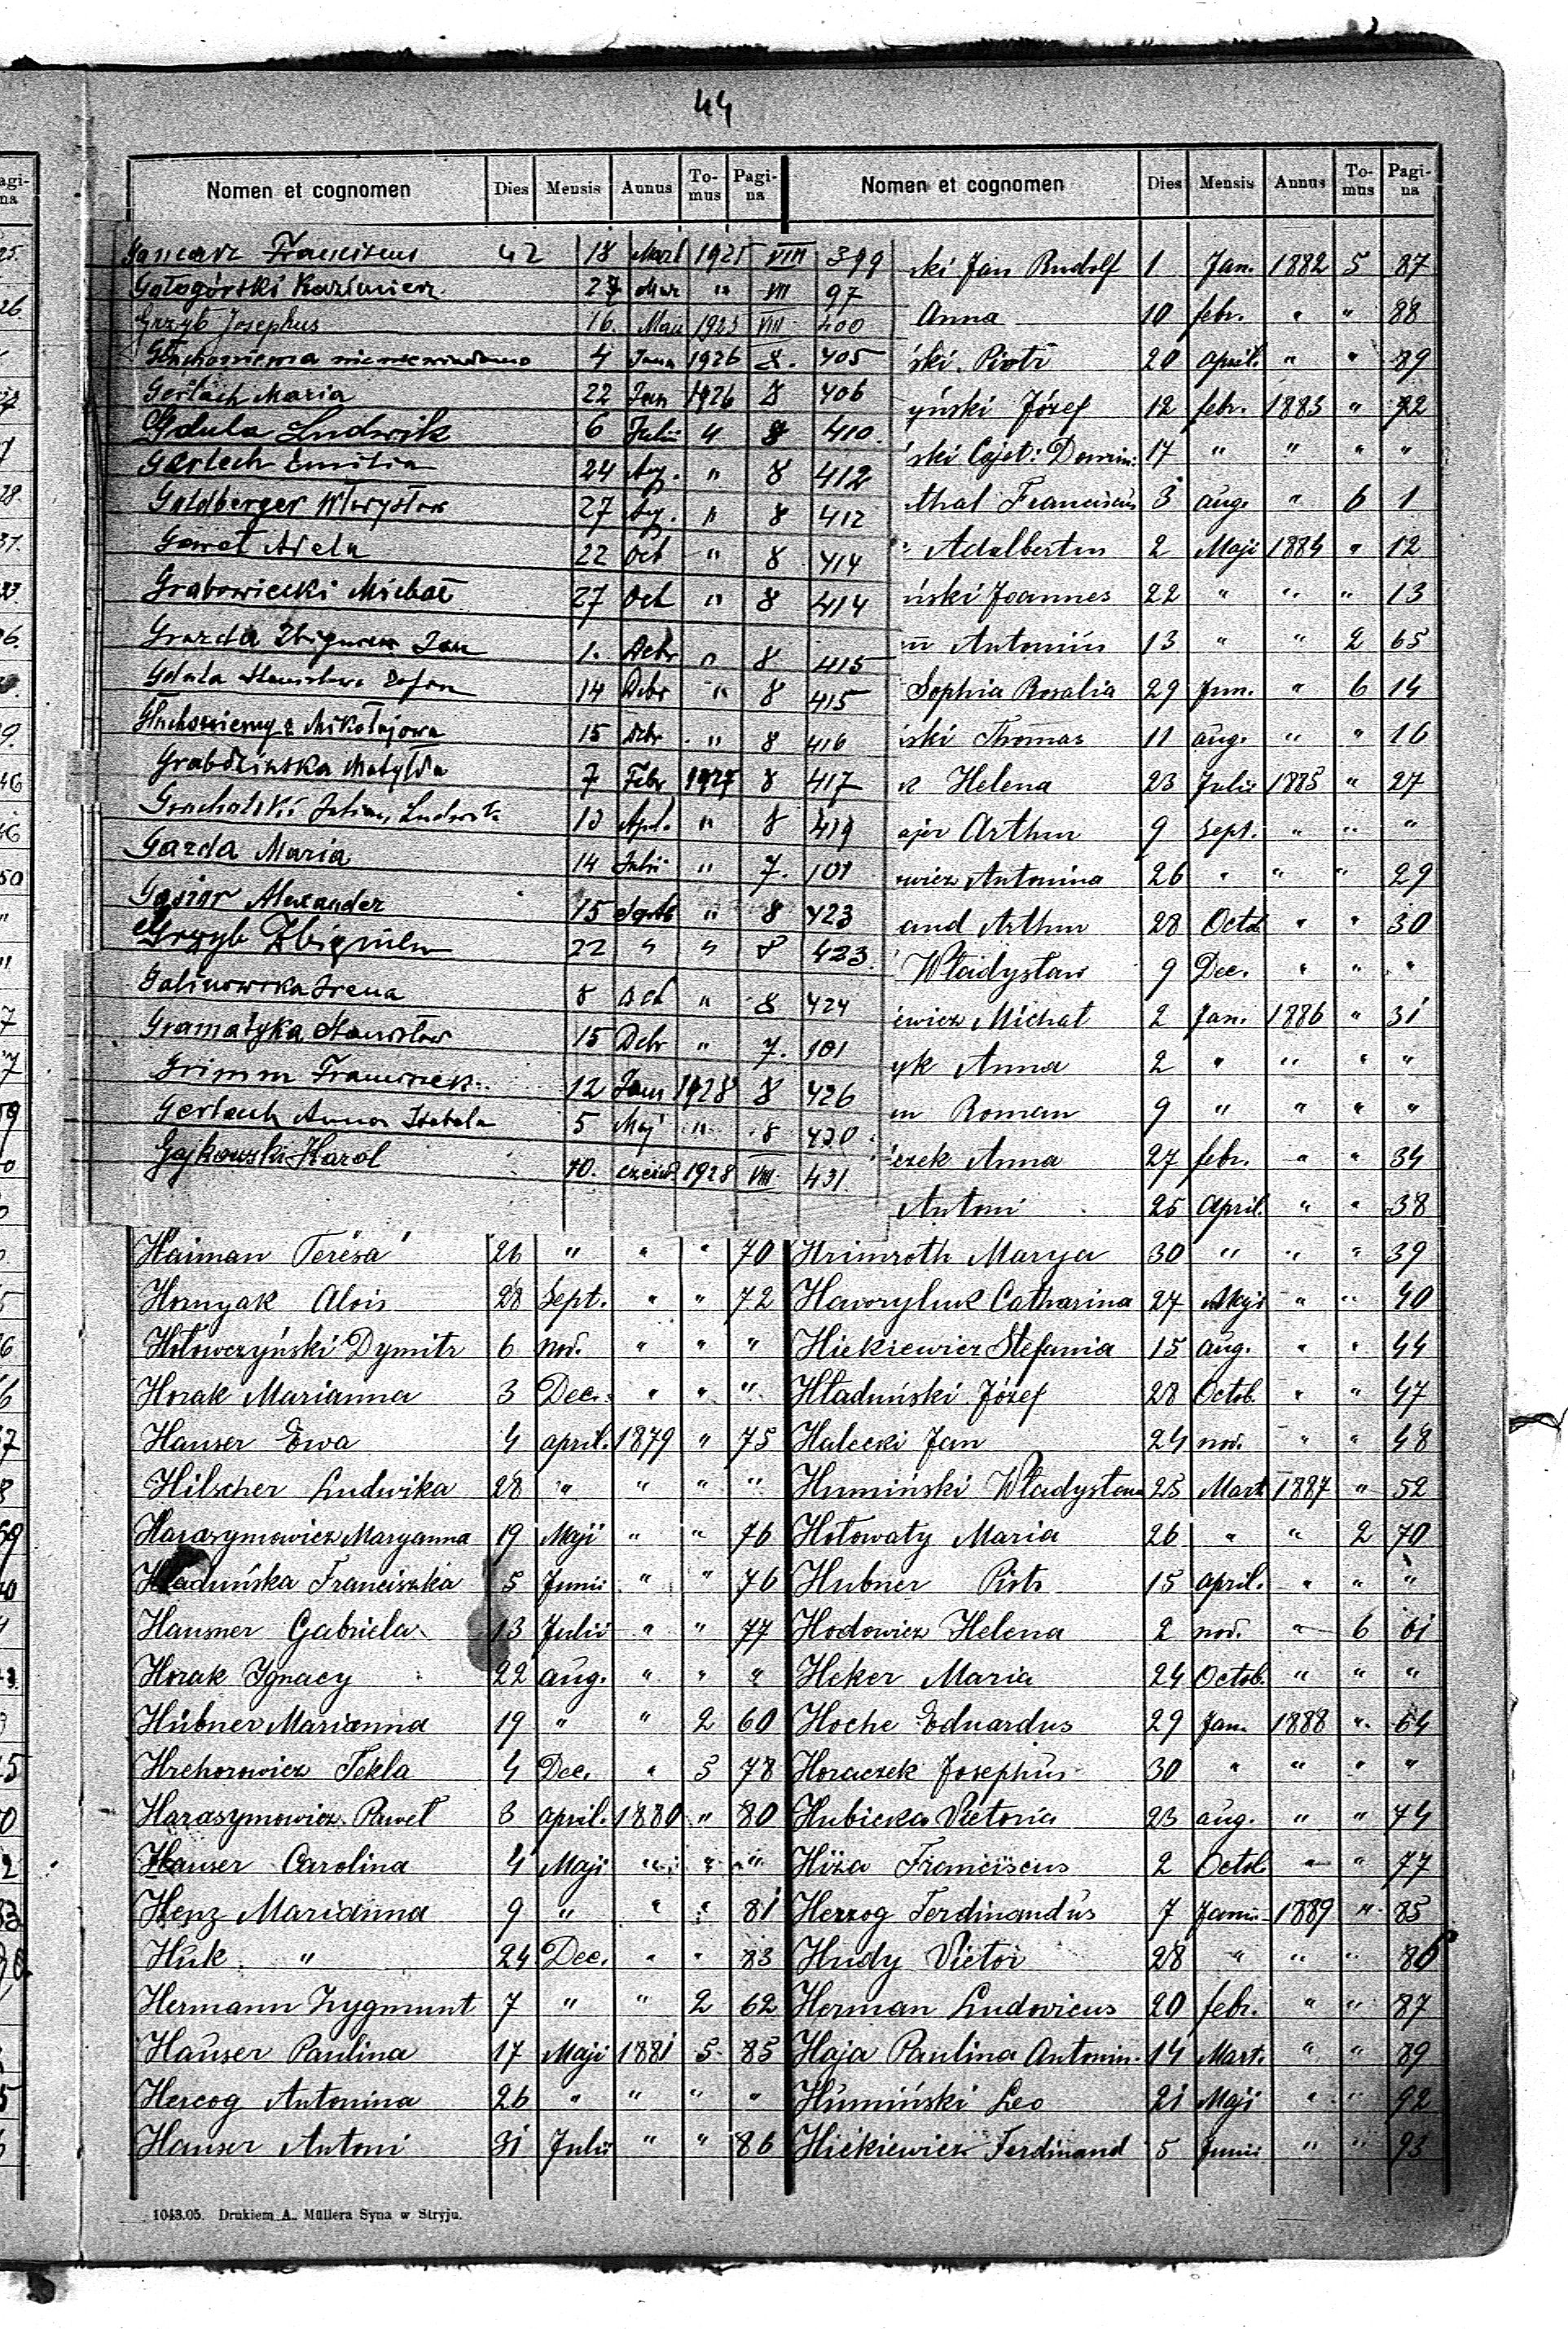 44
Nomen et cognomen Dies Mensis Annus To-mus Pagi-na
Gancarz Franciscus 42 18 Mart 1925 VIII 399
Gołogórski Kazimierz 27 Mar " VII 97
Grzyb Josephus 16. Maii 1925 VIII 400
Głuchoniema 4 Janu 1926 8. 405
Gerlach Maria 22 Jan 1926 8 406
Gdula Ludwik 6 Julii " 8 410.
Gerlech Emilia 24 Aug. " 8 412
Goldberger 27 Aug. " 8 412
Gaweł Adela 22 Oct " 8 414
Grabowiecki Michał 27 Oct " 8 414
Grazda Zbigniew Jan 1. Debr " 8 415
Gdula Stanisława Zofia 14 Debr " 8 415
Głuchoniemy z Mikołajowa 15 Debr " 8 416
Grabdzińska Matylda 7 Febr 1927 8 417
Grochalski Julian Ludwik 13 Apl. " 8 419
Gazda Maria 14 Julii " 7. 101
Gąsior Alexander 15 Septb " 8 423
Grzyb Zbigniew 22 " " 8 423.
Galinowska Irena 8 Oct " 8 424
Gramatyka Stanisław 15 Debr " 7. 101
Grimm Franciszek 12 Janu 1928 8 426
Gerlach Anna Izabela 5 Maj " 8 430.
Gajkowski Karol 10. czerw. 1928 VIII 431.
Haiman Teresa 26 " " " 70
Hornyak Alois 28 Sept. " " 72
Hołowczyński Dymitr 6 nov. " " "
Horak Marianna 3 Dec. " " "
Hauser Ewa 4 april. 1879 " 75
Hilscher Ludwika 28 " " " "
Harasymowicz Maryanna 19 Maji " " 76
Hładuńska Franciszka 5 Junii " " 76
Hausner Gabriela 13 Julii " " 77
Horak Ignacy 22 aug. " " "
Hübner Marianna 19 " " 2 60
Hrehorowicz Tekla 4 Dec. " 5 78
Harasymowicz Paweł 3 april. 1880 " 80
Hauser Carolina 4 Maji " " "
Henz Marianna 9 " " " 81
Huk " 24 Dec. " " 83
Hermann Zygmunt 7 " " 2 62
Hauser Paulina 17 Maji 1881 5 85
Hercog Antonina 26 " " " "
Hauser Antoni 31 Julii " " 86
Nomen et cognomen Dies Mensis Annus To-mus Pagi-na
ski Jan Rudolf 1 Jan. 1882 5 87
Anna 10 febr. " " 88
ski Piotr 20 april. " " 89
yński Józef 12 febr. 1883 " 92
ński Cajet: Domin: 17 " " " "
thal Franciscus 3 aug. " 6 1
Adalbertus 2 Maji 1884 " 12
ński Joannes 22 " " " 13
Antonius 13 " " 2 65
Sophia Rosalia 29 Jun. " 6 14
ski Thomas 11 aug. " " 16
Helena 23 Julii 1885 " 27
ajer Arthur 9 Sept. " " "
wicz Antonina 26 " " " 29
and Arthur 28 Octob " " 30
Władysław 9 Dec. " " "
ewicz Michał 2 Jan. 1886 " 31
yk Anna 2 " " " "
Roman 9 " " " "
czek Anna 27 febr. " " 34
Antoni 25 april. " " 38
Hrimroth Marya 30 " " " 39
Hawryluk Catharina 27 Maji " " 40
Hickiewicz Stefania 15 aug. " " 44
Hładuński Józef 28 Octob. " " 47
Halecki Jan 24 nov. " " 48
Humiński Władysław 25 Mart. 1887 " 52
Hołowaty Maria 26 " " 2 70
Hubner Piotr 15 april. " " "
Hodowicz Helena 2 nov. " 6 61
Heker Maria 24 Octob. " " "
Hoche Eduardus 29 Jan. 1888 " 64
Horaczek Josephus 30 " " " "
Hubicka Victoria 23 aug. " " 74
Hiża Franciscus 2 Octob " " 77
Herzog Ferdinandus 7 Januar 1889 " 85
Hudy Victor 28 " " " 86
Herman Ludovicus 20 febr. " " 87
Haja Paulina Antonin. 14 Mart. " " 89
Humiński Leo 21 Maji " " 92
Hickiewicz Ferdinand 5 Junii " " 93
1043.05. Drukiem A. Müllera Syna w Stryju.